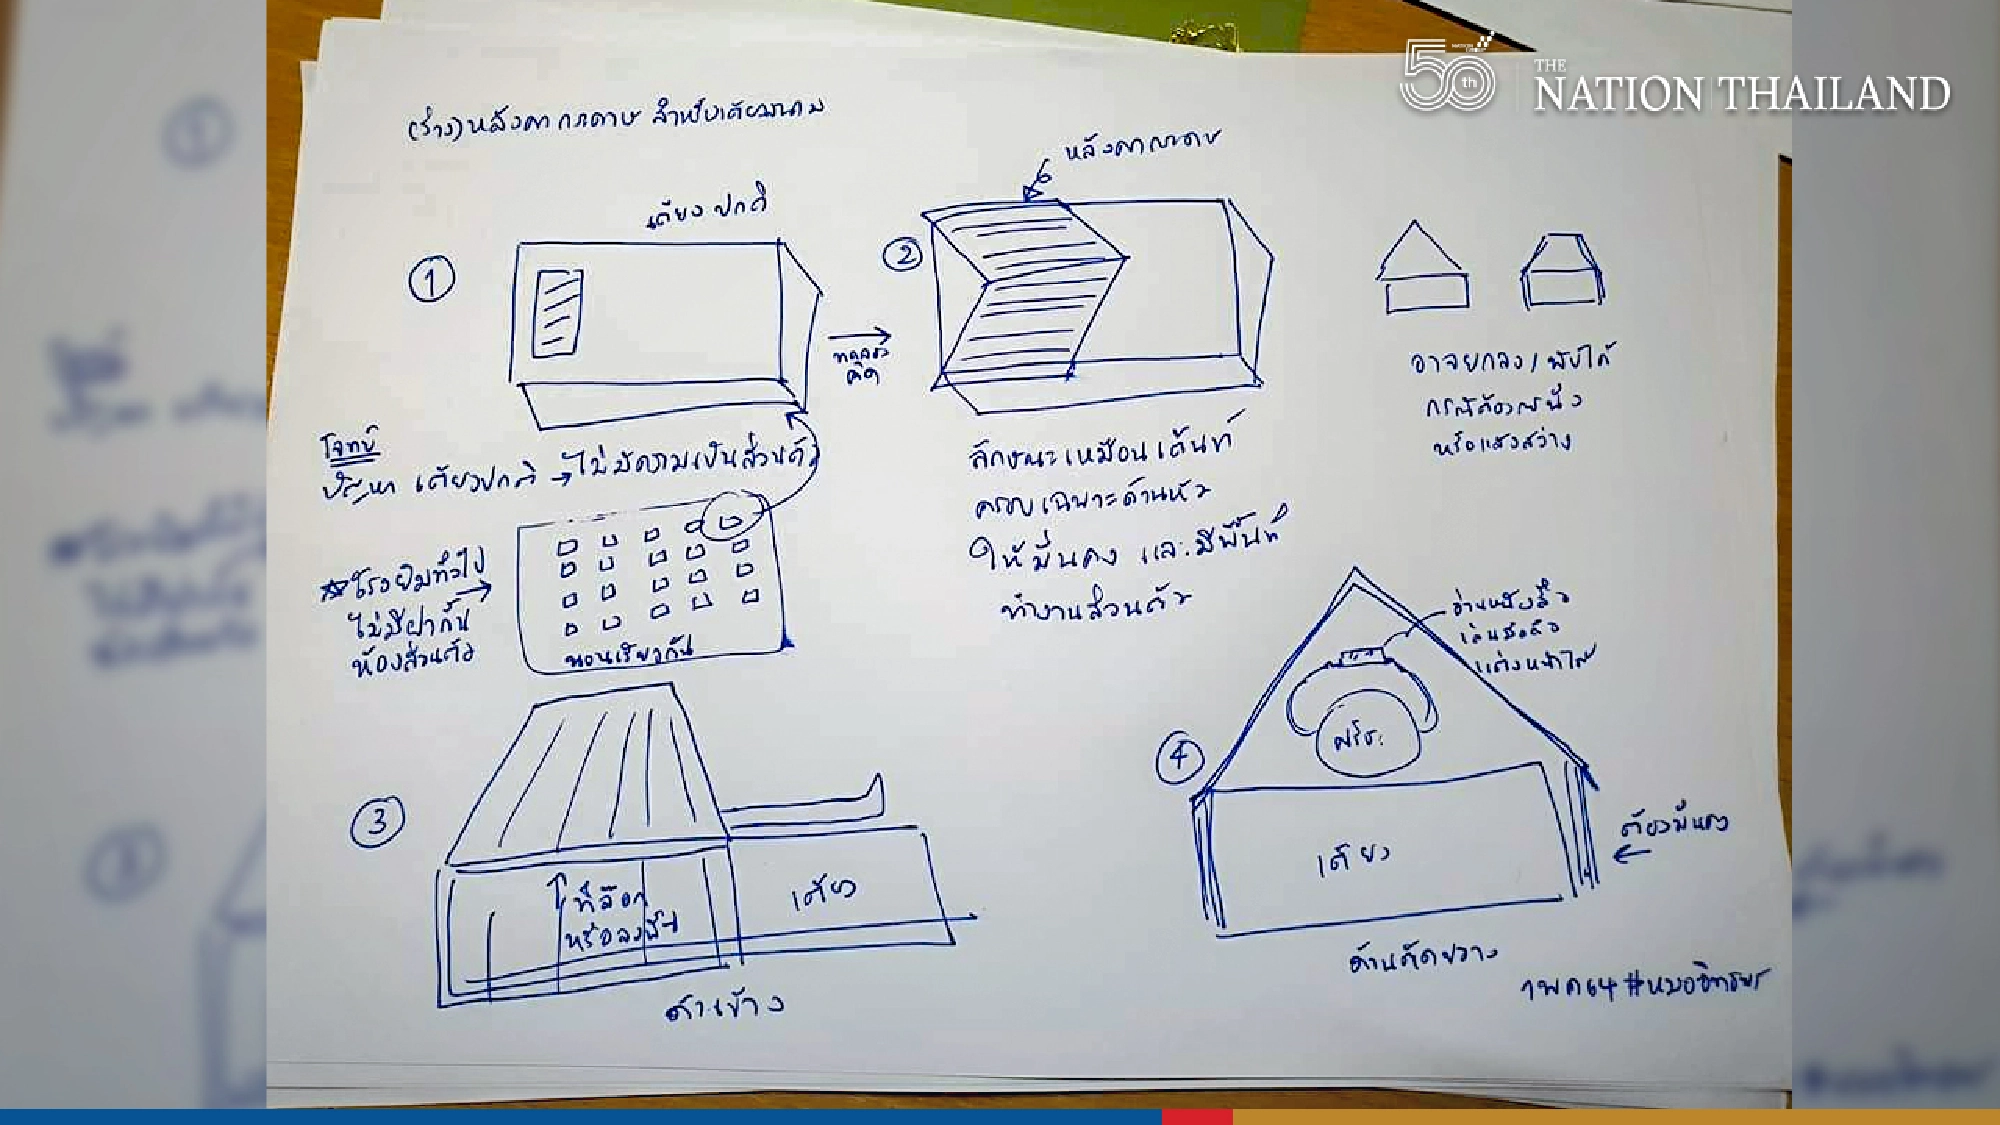 50th
THE
NATION THAILAND
(ร่าง) หลังคากระดาษ สำหรับเตียงสนาม
เตียงปกติ
1
ทดลอง
คิด
หลังคากระดาษ
2
อาจยกลง/พับได้
กรณีต้องการนั่ง
หรือแสงสว่าง
โจทย์
ปัญหา เตียงปกติ → ไม่มีความเป็นส่วนตัว
โรงยิมทั่วไป
ไม่มีฝากั้น
ห้องส่วนตัว
นอนเรียงกัน
ลักษณะเหมือนเต้นท์
ครอบเฉพาะด้านหัว
ให้มั่นคง และมีพื้นที่
ทำงานส่วนตัว
3
ที่ล็อก
หรือลงพื้น
เตียง
ด้านข้าง
4
อ่านหนังสือ
เล่นมือถือ
แต่งหน้าได้
ศรีษะ
เตียง
ต้องมั่นคง
ด้านตัดขวาง
1 พค 64 #หมออิทธิพร